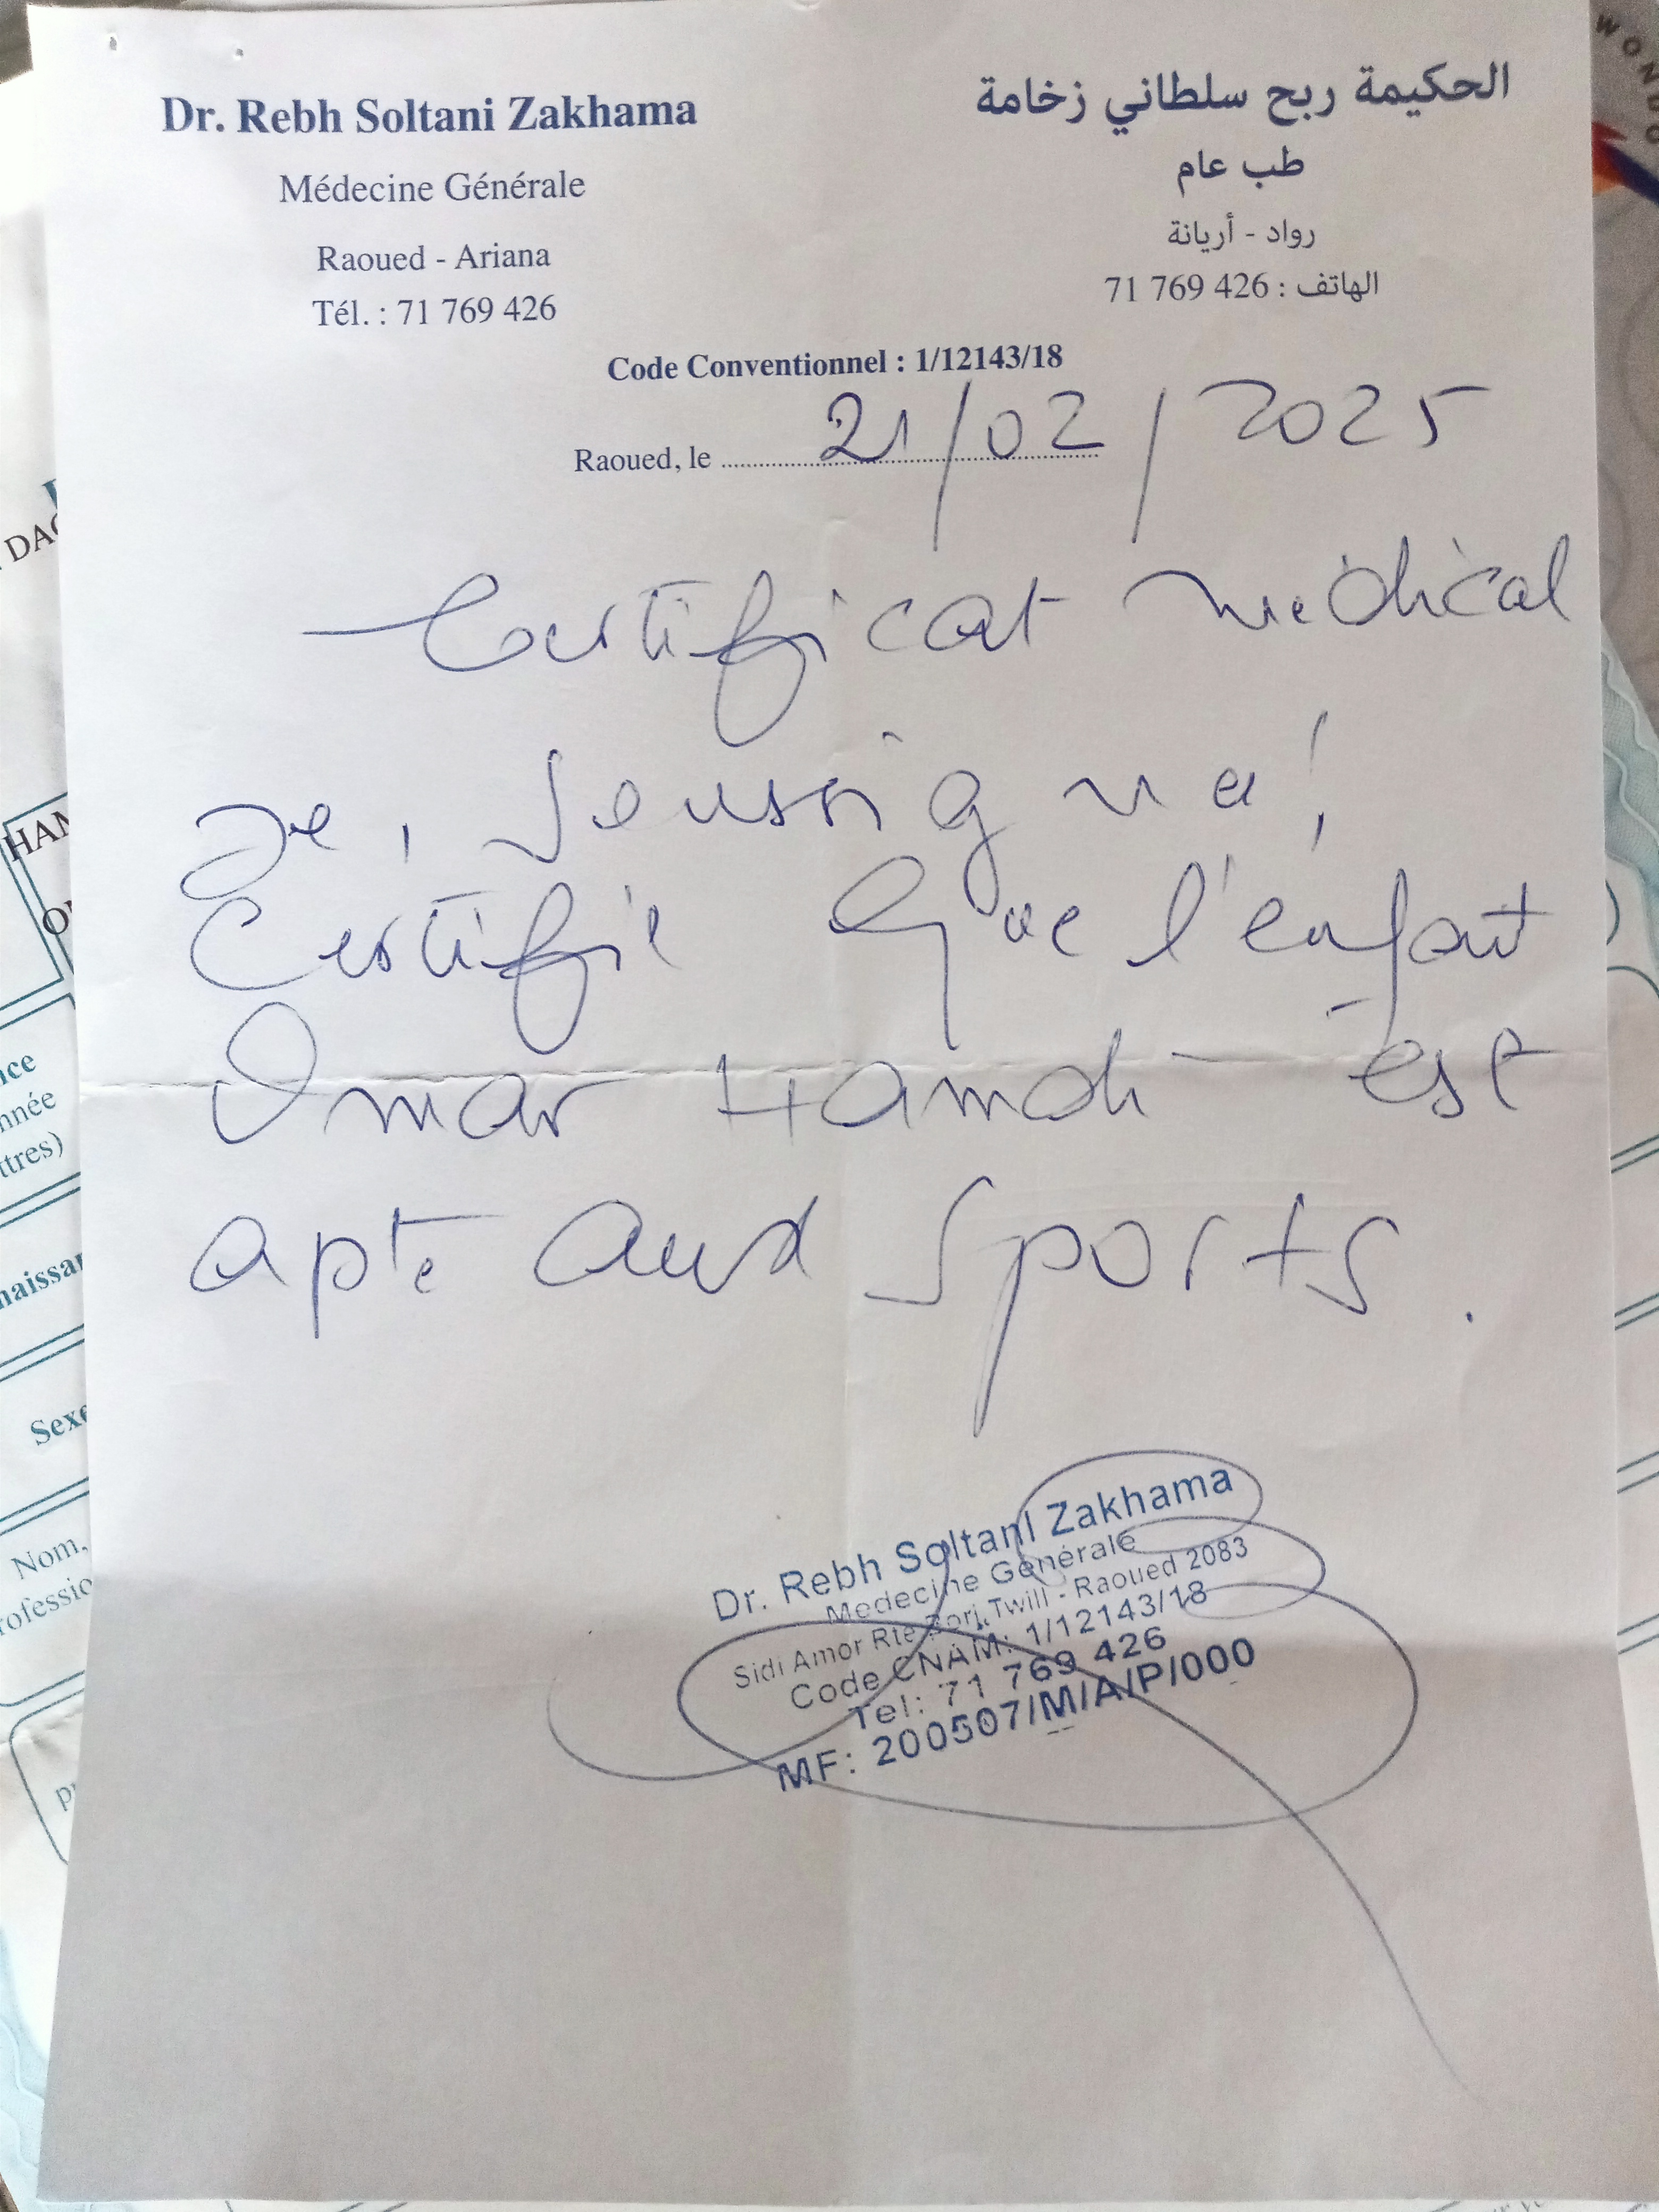 Dr. Rebh Soltani Zakhama
Médecine Générale
Raoued - Ariana
Tél. : 71 769 426
الحكيمة ربح سلطاني زخامة
طب عام
رواد - أريانة
الهاتف : 426 769 71
Code Conventionnel : 1/12143/18
Raoued, le 21/02/2025
Certificat médical
Je, soussigné,
Certifie que l'enfant
Omar Hamdi est
apte aux sports.
Dr. Rebh Soltani Zakhama
Medecine Générale
Sidi Amor Rte Borj Twill - Raoued 2083
Code CNAM: 1/12143/18
Tel: 71 769 426
MF: 200507/M/A/P/000
DAC
HAN
nnée
ttres)
naissan
Sexe
Nom,
rofessio
WONDO